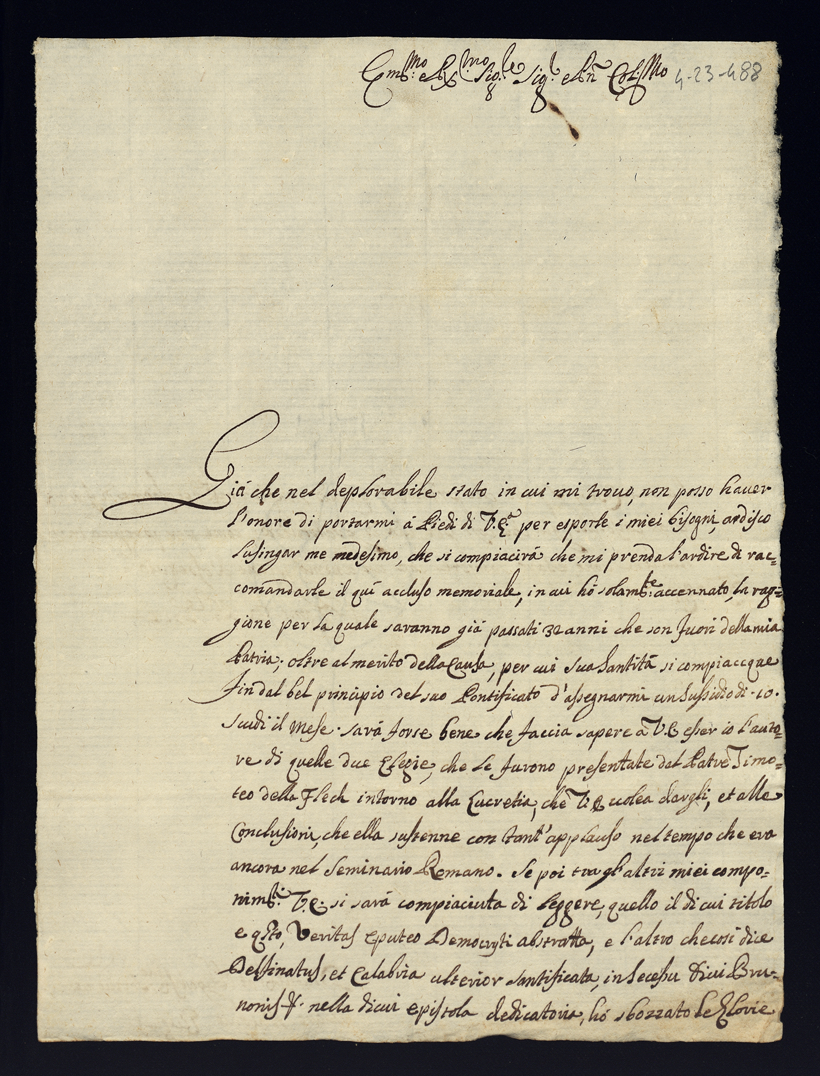 Em.mo e R.mo Sig.re Sig.r e Pn̄ Col.mo 4-23-488
Già che nel deplorabile stato in cui mi trovo, non posso haver
l'onore di portarmi á Piedi di V.E. per esporle i miei bisogni, ardisco
lusingar me medesimo, che si compiacirá che mi prenda l'ardire di rac=
comandarle il quí accluso memoriale, in cui hó solam.te accennato, la rag=
gione per la quale saranno giá passati 32 anni che son fuori della mia
Patria; oltre al merito della Causa, per cui sua Santitá si compiacque
fin dal bel principio del suo Pontificato d'assegnarmi un sussidio di .10.
scudi il Mese. sará forse bene che faccia sapere à V.E esser io l'auto=
re di quelle due Elegie, che le furono presentate dal Patre Timo=
teo della Flech intorno alla Lucretia, che V.E volea dargli, et alle
Conclusioni, che ella sustenne con tant'applauso nel tempo che era
ancora nel Seminario Romano. Se poi tra gl'altri miei compo=
nim.ti V.E. si sará compiaciuta di leggere, quello il di cui titolo
e q.sto, Veritas e puteo Democryti abstratta, e l'altro che cosí dice
Delfinatus, et Calabria ulterior santificata, in secessu Divi Bru=
nonis &. nella di cui epistola dedicatoria, hó sbozzato le Glorie